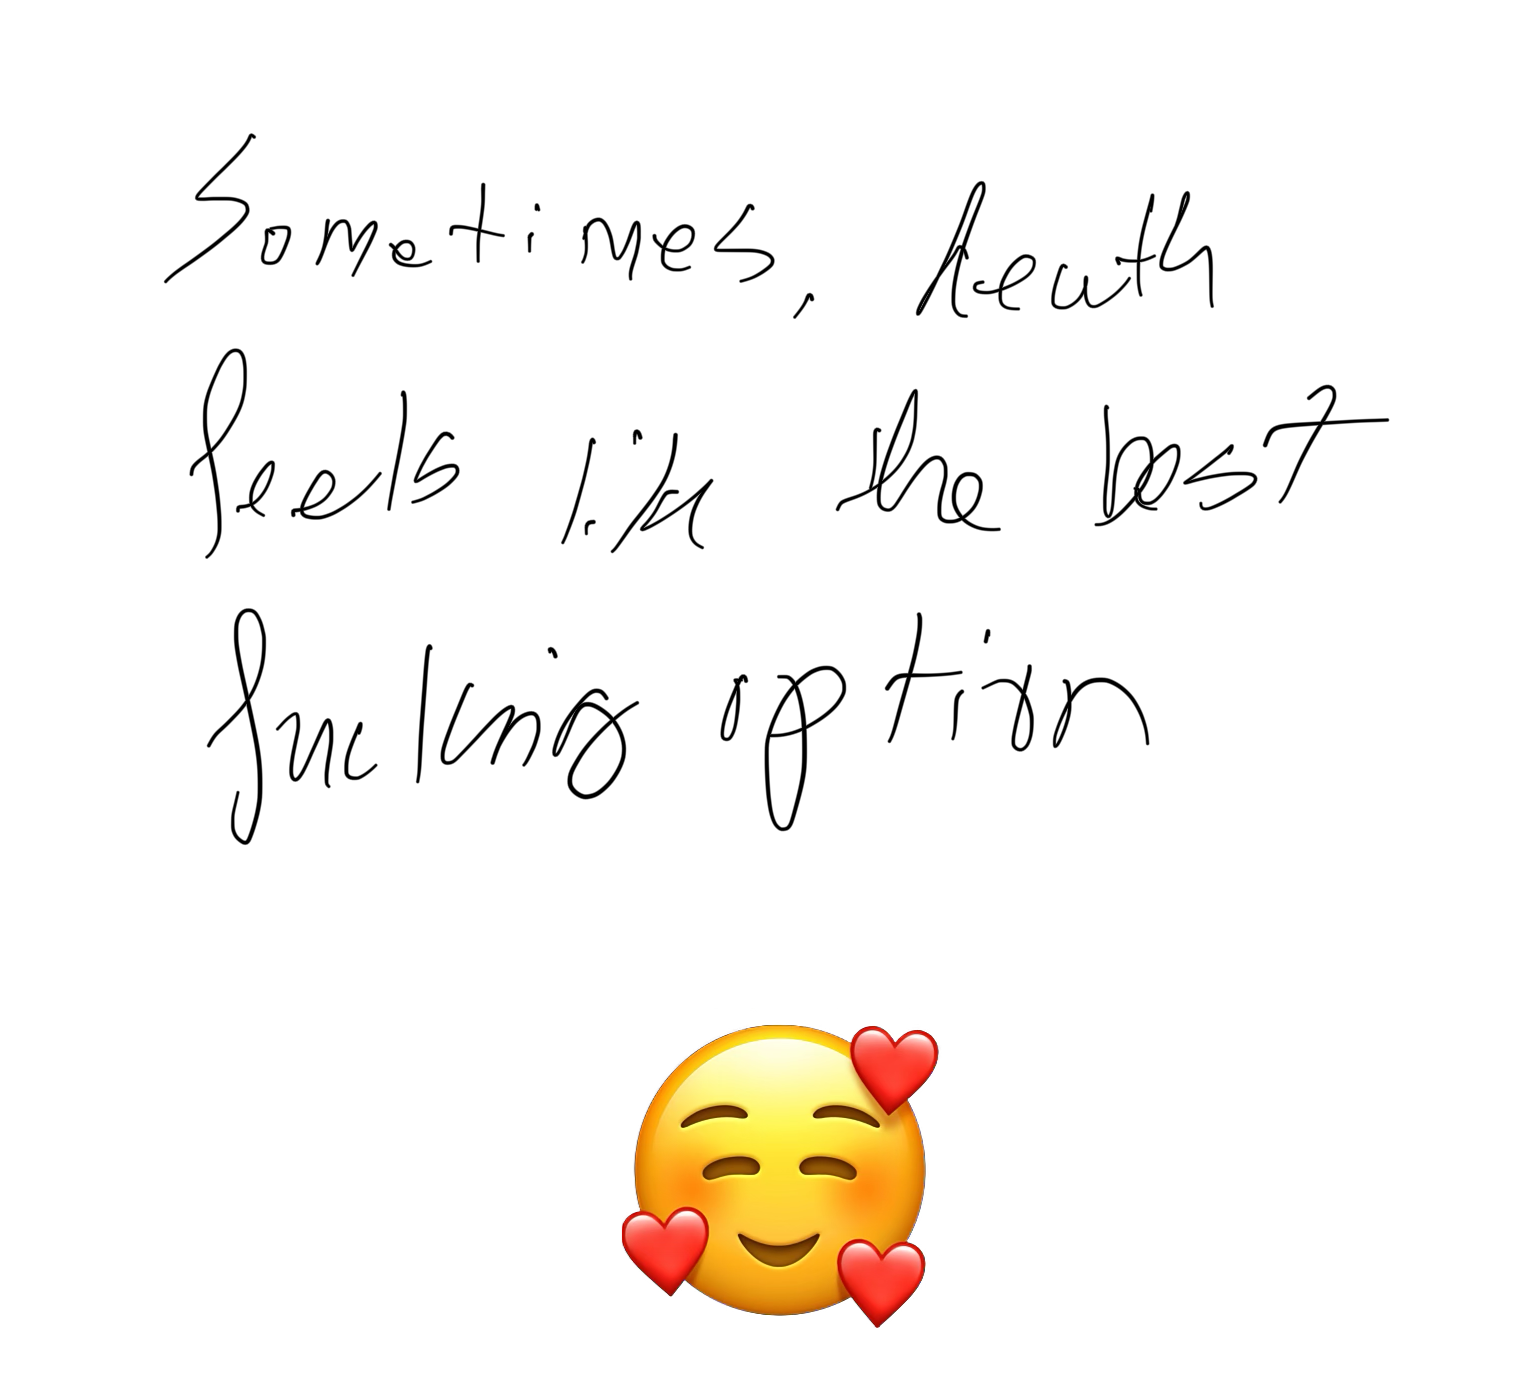 Sometimes, death
feels like the best
fucking option